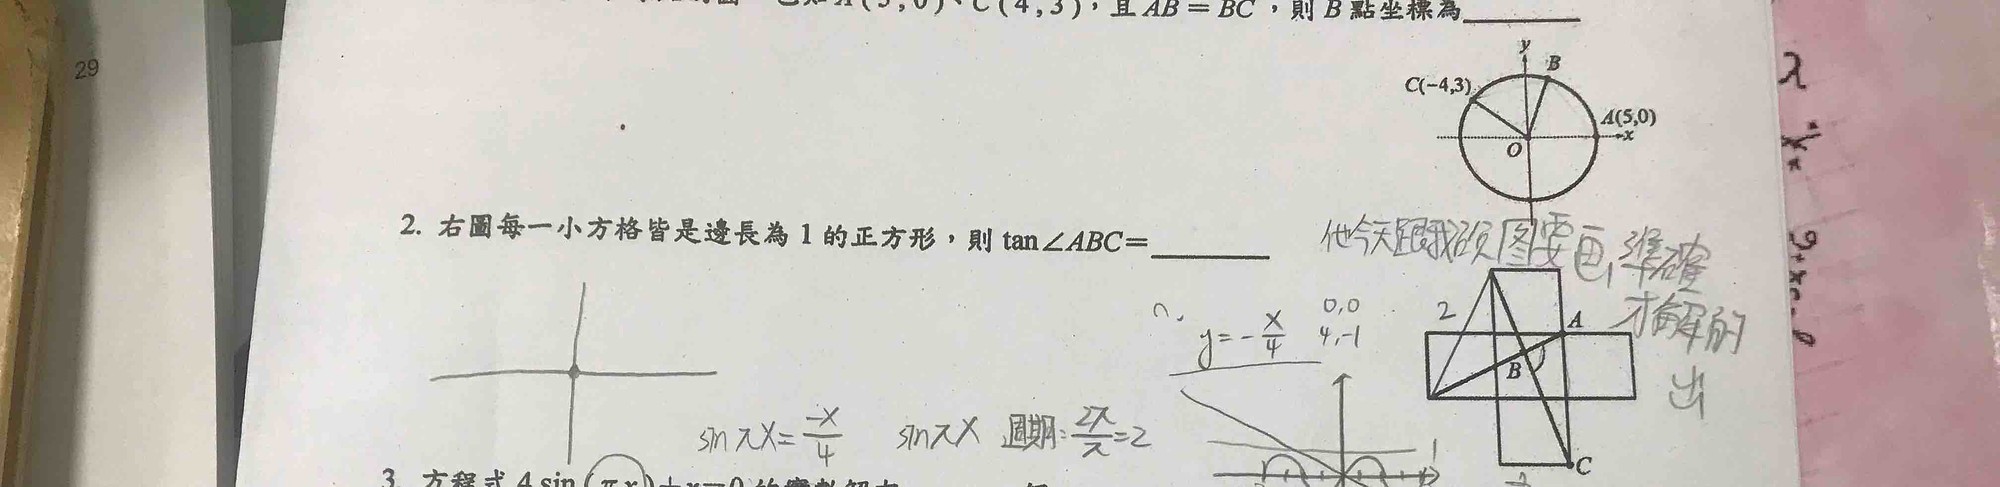 29
A(5,0)、C(4,3),且 AB = BC,則 B 點坐標為
y
B
C(-4,3)
A(5,0)
x
O
2. 右圖每一小方格皆是邊長為 1 的正方形,則 tan∠ABC=
他今天跟我說图要画準確
才解的
出
2
A
B
C
y = -x/4
0,0
4,-1
sin πx = -x/4
sin πx 週期: 2π/π = 2
1
3. 方程式 4 sin (πx)+x=0 的實數解有